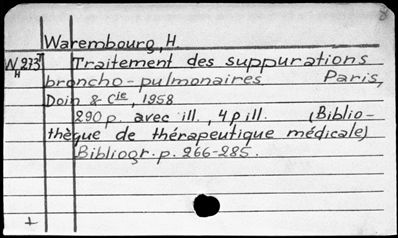 8
Warembourg, H.
WH 273 Traitement des suppurations
broncho-pulmonaires Paris,
Doin & Cie, 1958
290 p. avec ill., 4 p ill. (Biblio-
thèque de thérapeutique médicale)
Bibliogr. p. 266-285.
+